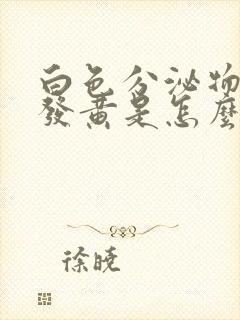 白色分泌物
發黃是怎麼
徐曉